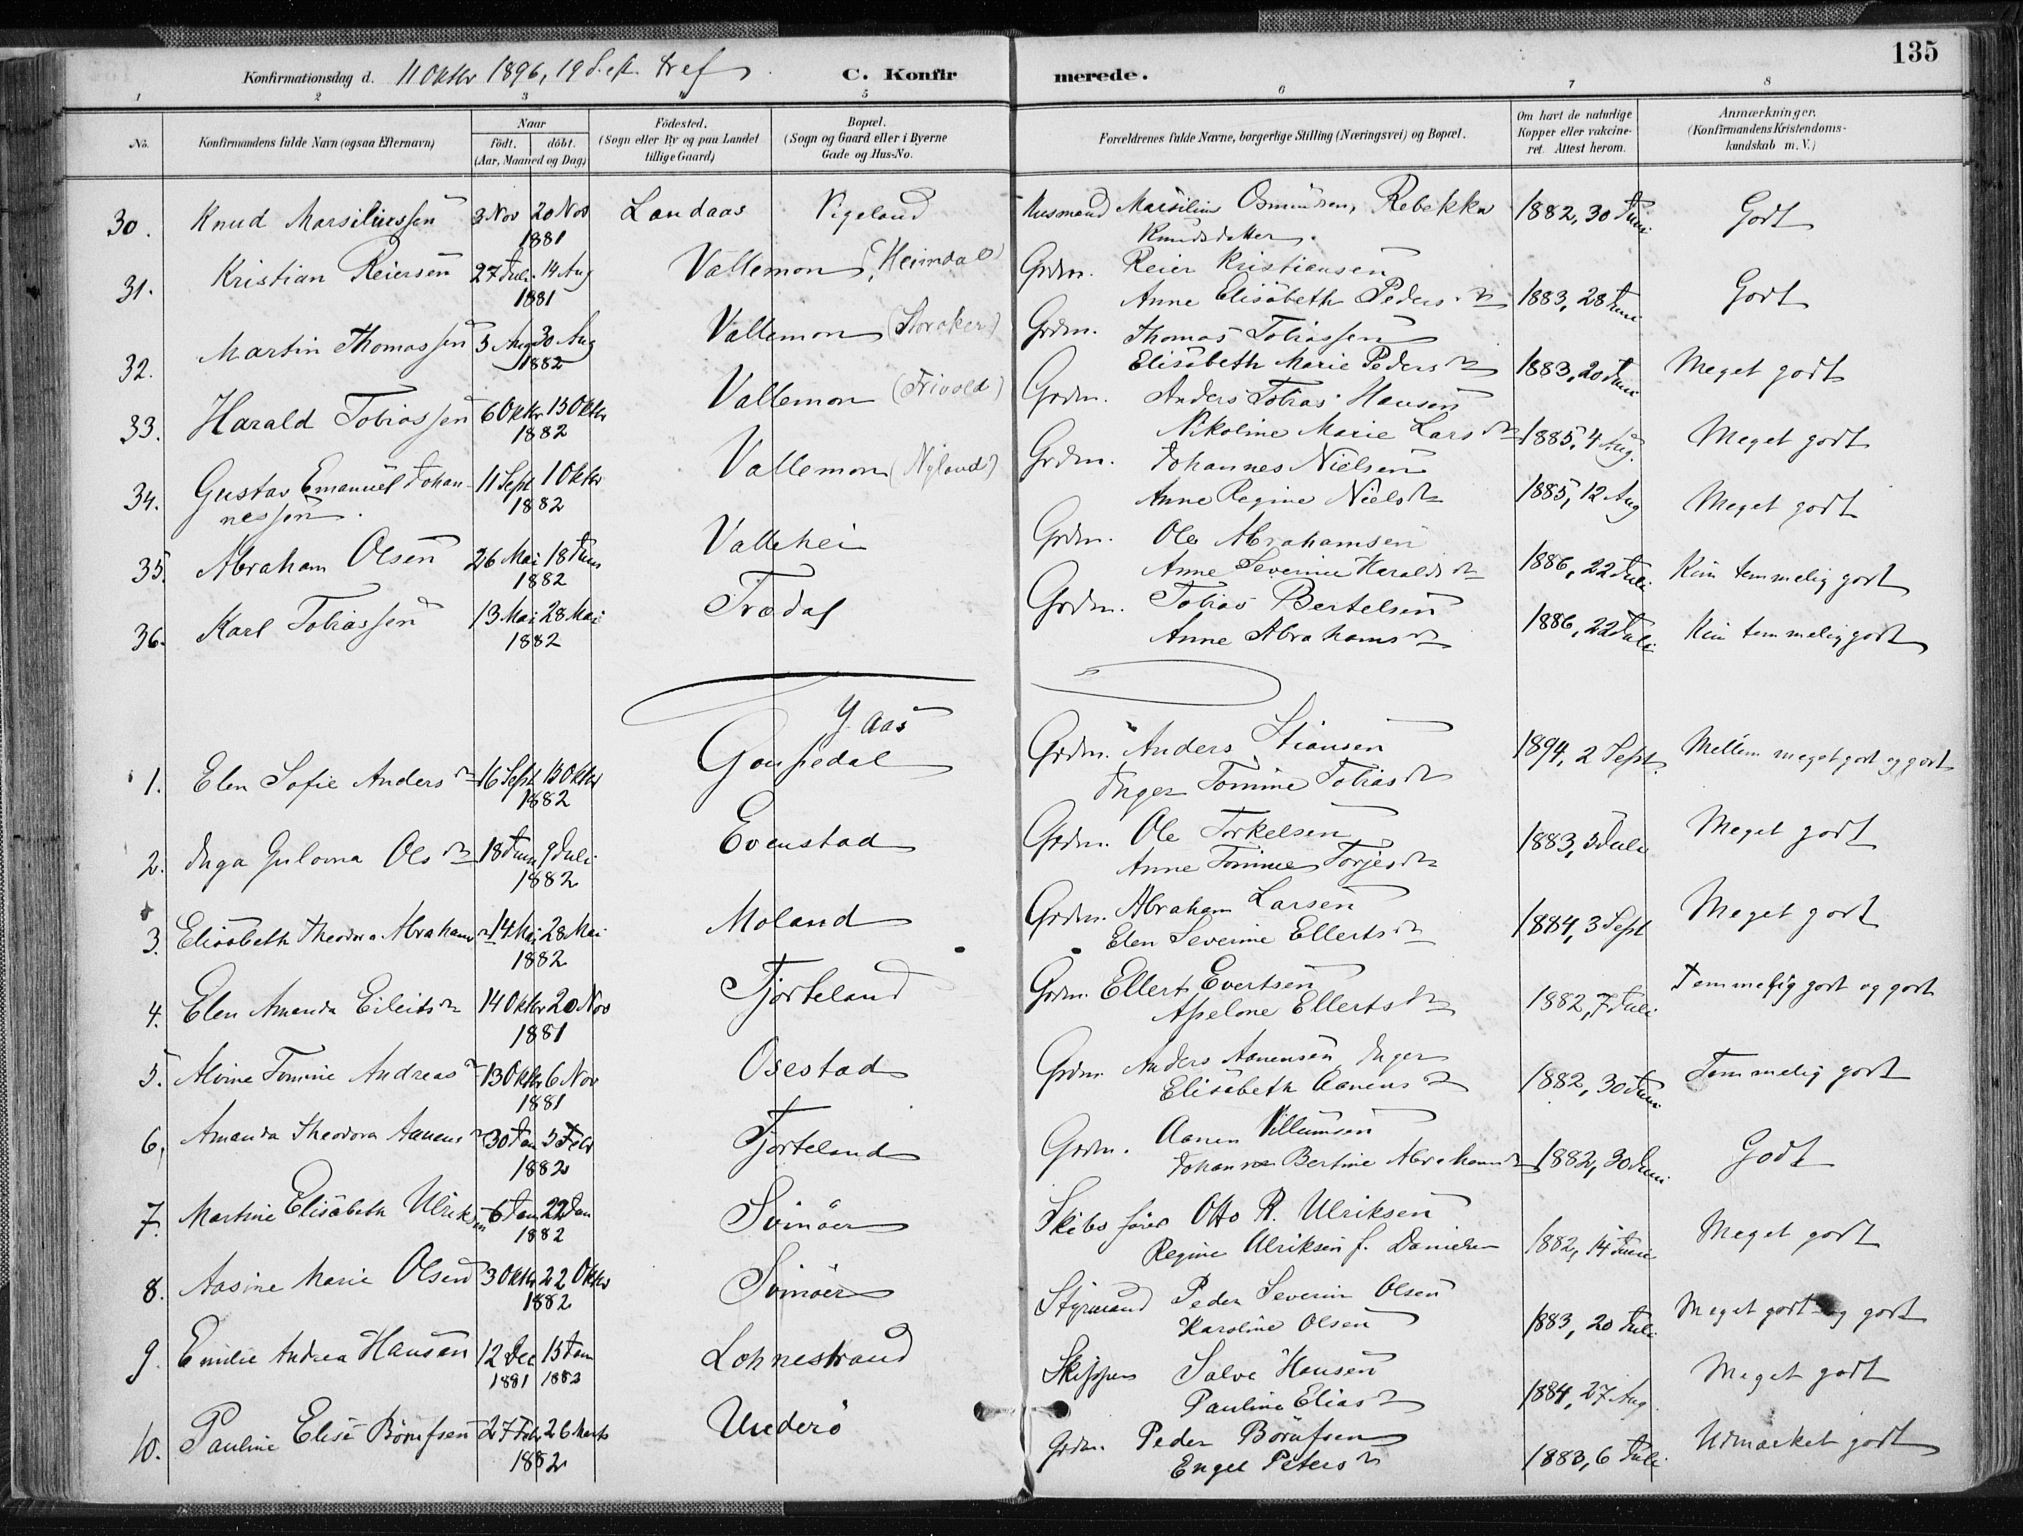 135
Konfirmationsdag d. 11 Oktbr 1896, 19 S. e. Tref C. Konfir merede.
1 2 3 4 5 6 7 8
No. Konfirmandens fulde Navn (ogsaa Efternavn) Naar født. døbt. (Aar, Maaned og Dag) Fødested. (Sogn eller By og paa Landet tillige Gaard) Bopæl. (Sogn og Gaard eller i Byerne Gade og Hus-No. Forældrenes fulde Navne, borgerlige Stilling (Næringsvei) og Bopæl. Om havt de naturlige Kopper eller vakcineret. Attest herom. Anmærkninger. (Konfirmandens Kristendomskundskab m. V.)
30. Knud Marsiliussen 3 Nov 20 Nov 1881 Landaas Vigeland Husmand Marsilius Osmundsen, Rebekka Knudsdatter. 1882, 30 Juni Godt
31. Kristian Reiersen 27 Juli 14 Aug 1881 Vallemon (Heimdal) Grdm. Reier Kristiansen Anne Elisabeth Pedersdtr 1883, 28 Juni Godt
32. Martin Thomassen 3 Aug 30 Aug 1882 Vallemon (Storaker) Grdm. Thomas Tobiassen Elisabeth Marie Pedersdtr 1883, 20 Juni Meget godt
33. Harald Tobiassen 6 Oktbr 15 Oktbr 1882 Vallemon (Frivold) Grdm. Anders Tobias Hansen Nikoline Marie Larsdtr 1885, 4 Aug. Meget godt
34. Gustav Emanuel Johannessen. 11 Sept 1 Oktbr 1882 Vallemon (Nyland) Grdm. Johannes Nielsen Anne Regine Nielsdtr 1885, 12 Aug Meget godt
35. Abraham Olsen 26 Mai 18 Juni 1882 Vallehei Grdm. Ole Abrahamsen Anne Severine Haraldsdtr 1886, 22 Juli Kun temmelig godt
36. Karl Tobiassen 13 Mai 28 Mai 1882 Trædal Grdm. Tobias Bertelsen Anne Abrahamsdtr 1886, 22 Juli Kun temmelig godt
1. Elen Sofie Andersdtr 16 Sept 15 Oktbr 1882 Y. Aas Goupedal Grdm. Anders Stiansen Inger Tomine Tobiasdtr 1894, 2 Sept. Mellem meget godt og godt
2. Inga Gulovna Olsdtr 18 Juni 9 Juli 1882 Evenstad Grdm. Ole Torkelsen Anne Tomine Torjesdtr 1883, 5 Juli Meget godt
3. Elisabeth Theodora Abrahamsdtr 14 Mai 28 Mai 1882 Moland Grdm. Abraham Larsen Elen Severine Ellertsdtr 1884, 3 Sept Meget godt
4. Elen Amanda Eilertsdtr 14 Oktbr 20 Nov 1881 Fjorteland Grdm. Ellert Evertsen Apelone Ellertsdtr 1882, 7 Juli Temmelig godt og godt
5. Alvine Tomine Andreasdtr 13 Oktbr 6 Nov 1881 Osestad Grdm. Anders Aanensen Inger Elisabeth Aanensdtr 1882, 30 Juni Temmelig godt
6. Amanda Theodora Aanensdtr 30 Jan 5 Febr 1882 Fjorteland Grdm. Aanen Villumsen Johanne Bertine Abrahamsdtr 1882, 30 Juni Godt
7. Martine Elisabeth Ulriksen 6 Jan 22 Jan 1882 Svinøer Skibsfører Otto R. Ulriksen Regine Ulriksen f. Danielsen 1882, 14 Juni Meget godt
8. Aasine Marie Olsen 3 Oktbr 22 Oktbr 1882 Svinøer Styrmand Peder Severin Olsen Karoline Olsen 1883, 20 Juli Meget godt og godt
9. Emilie Andrea Hansen 12 Dec 1881 15 Jan 1882 Lohnestrand Skipper Salve Hansen Pauline Eliasdtr 1884, 27 Aug. Meget godt
10. Pauline Elise Børufsen 27 Feb 26 Marts 1882 Underø Grdm. Peder Børufsen Engel Petersdtr 1883, 6 Juli Udmærket godt